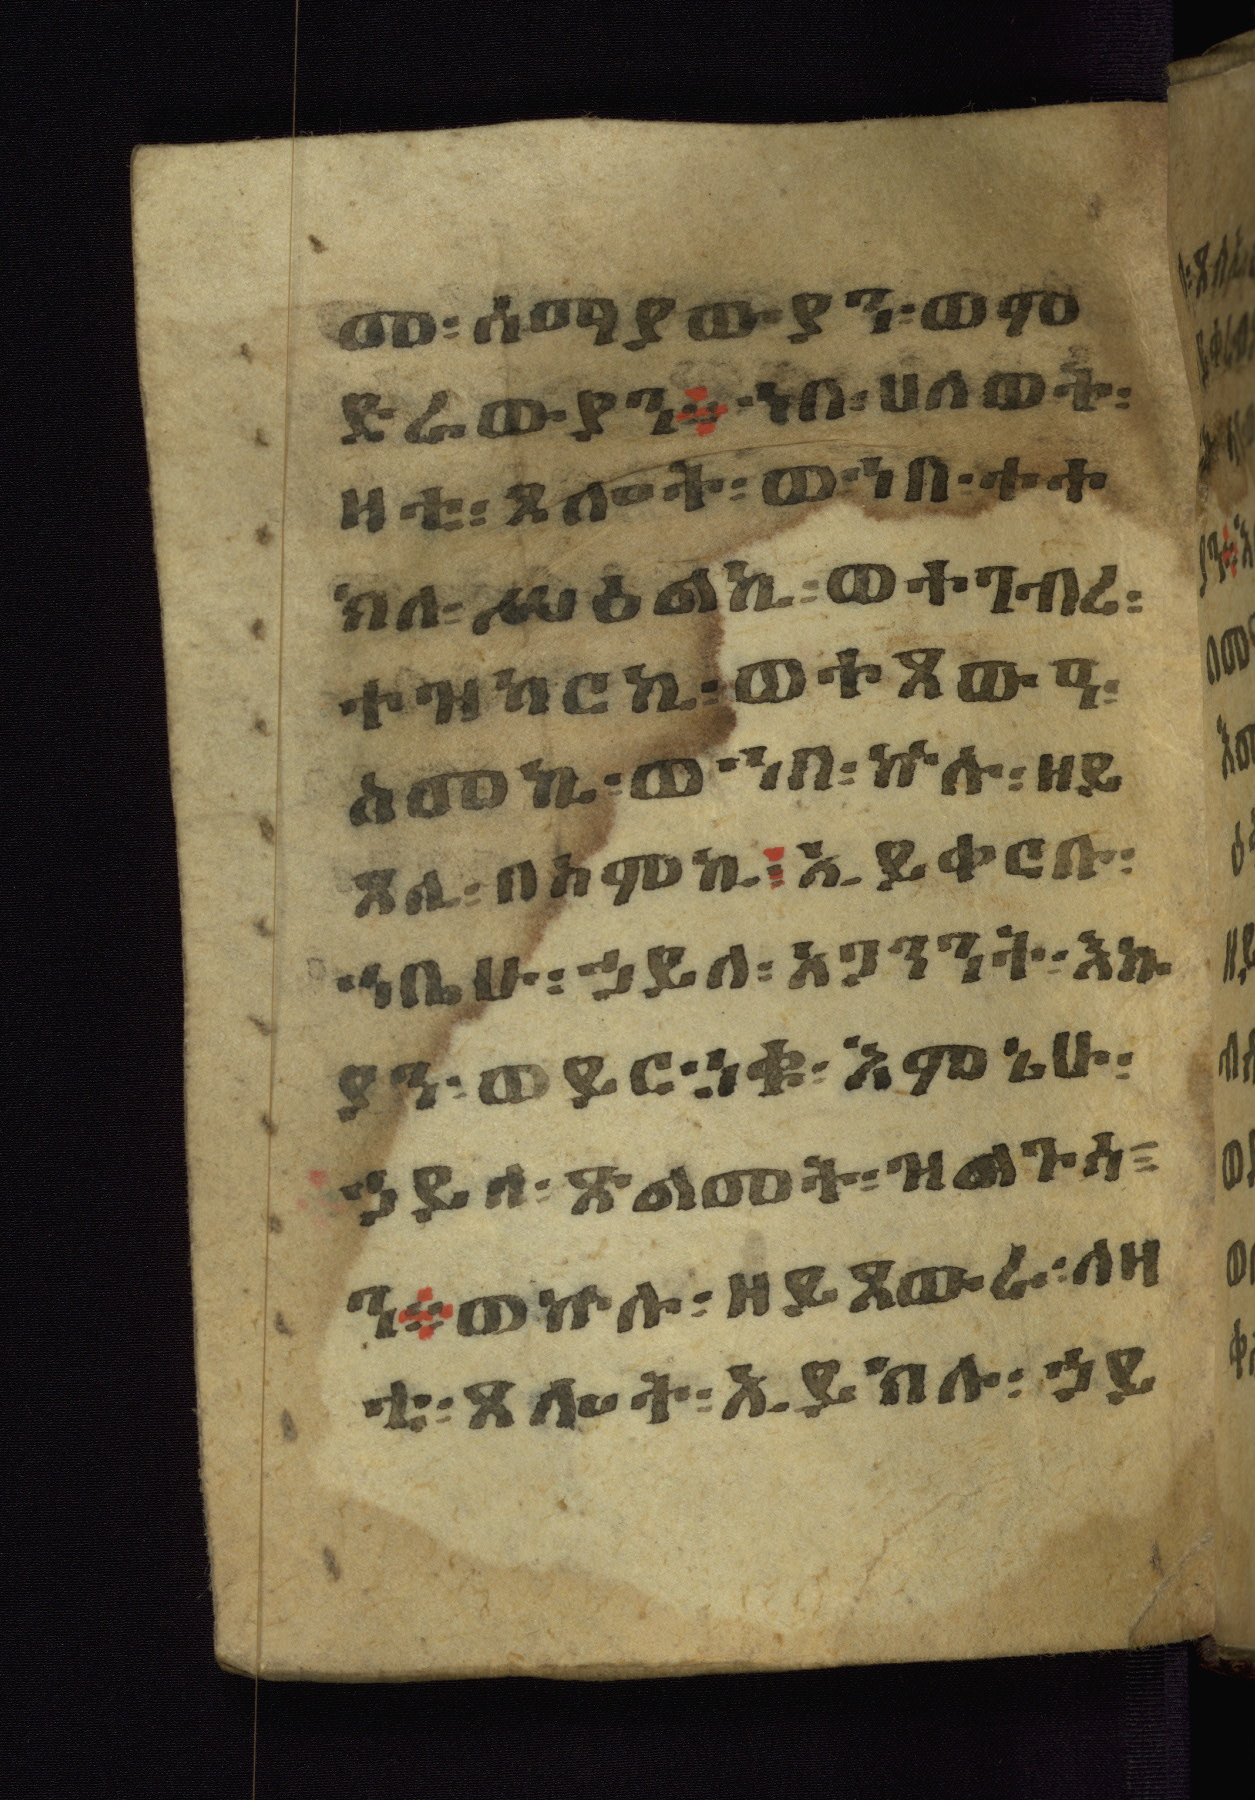 ሙ፡ሰማያውያን፡ወም
ድራውያን፨ኀበ፡ሀለወት፡
ዛቲ፡ጸሎት፡ወኀበ፡ተተ
ክለ፡ሥዕልኪ፡ወተገብረ፡
ተዝካርኪ፡ወተጸውዓ፡
ስመኪ፡ወኀበ፡ኵሉ፡ዘይ
ጸሊ፡በስምኪ፡ኢይቅርቡ፡
ኀቤሁ፡ኃይለ፡አጋንንት፡እኩ
ያን፡ወይርኀቁ፡እምኔሁ፡
ኃይለ፡ጽልመት፡ዝልጉሳ
ን፨ወኵሉ፡ዘይጸውራ፡ለዛ
ቲ፡ጸሎት፡ኢይክሉ፡ኃይ